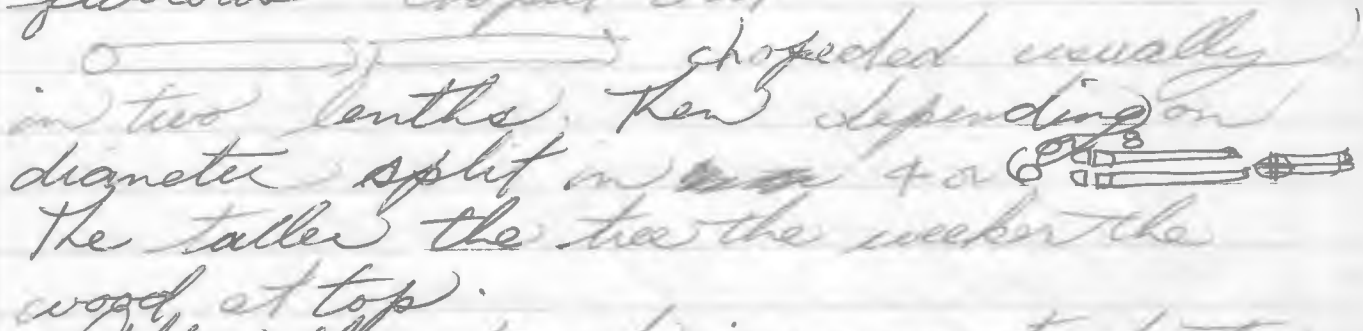 chopeded usually
in two lenths. Then depending on
diameter split in 4 or 6 or 8
The taller the tree the weeker the
wood at top.